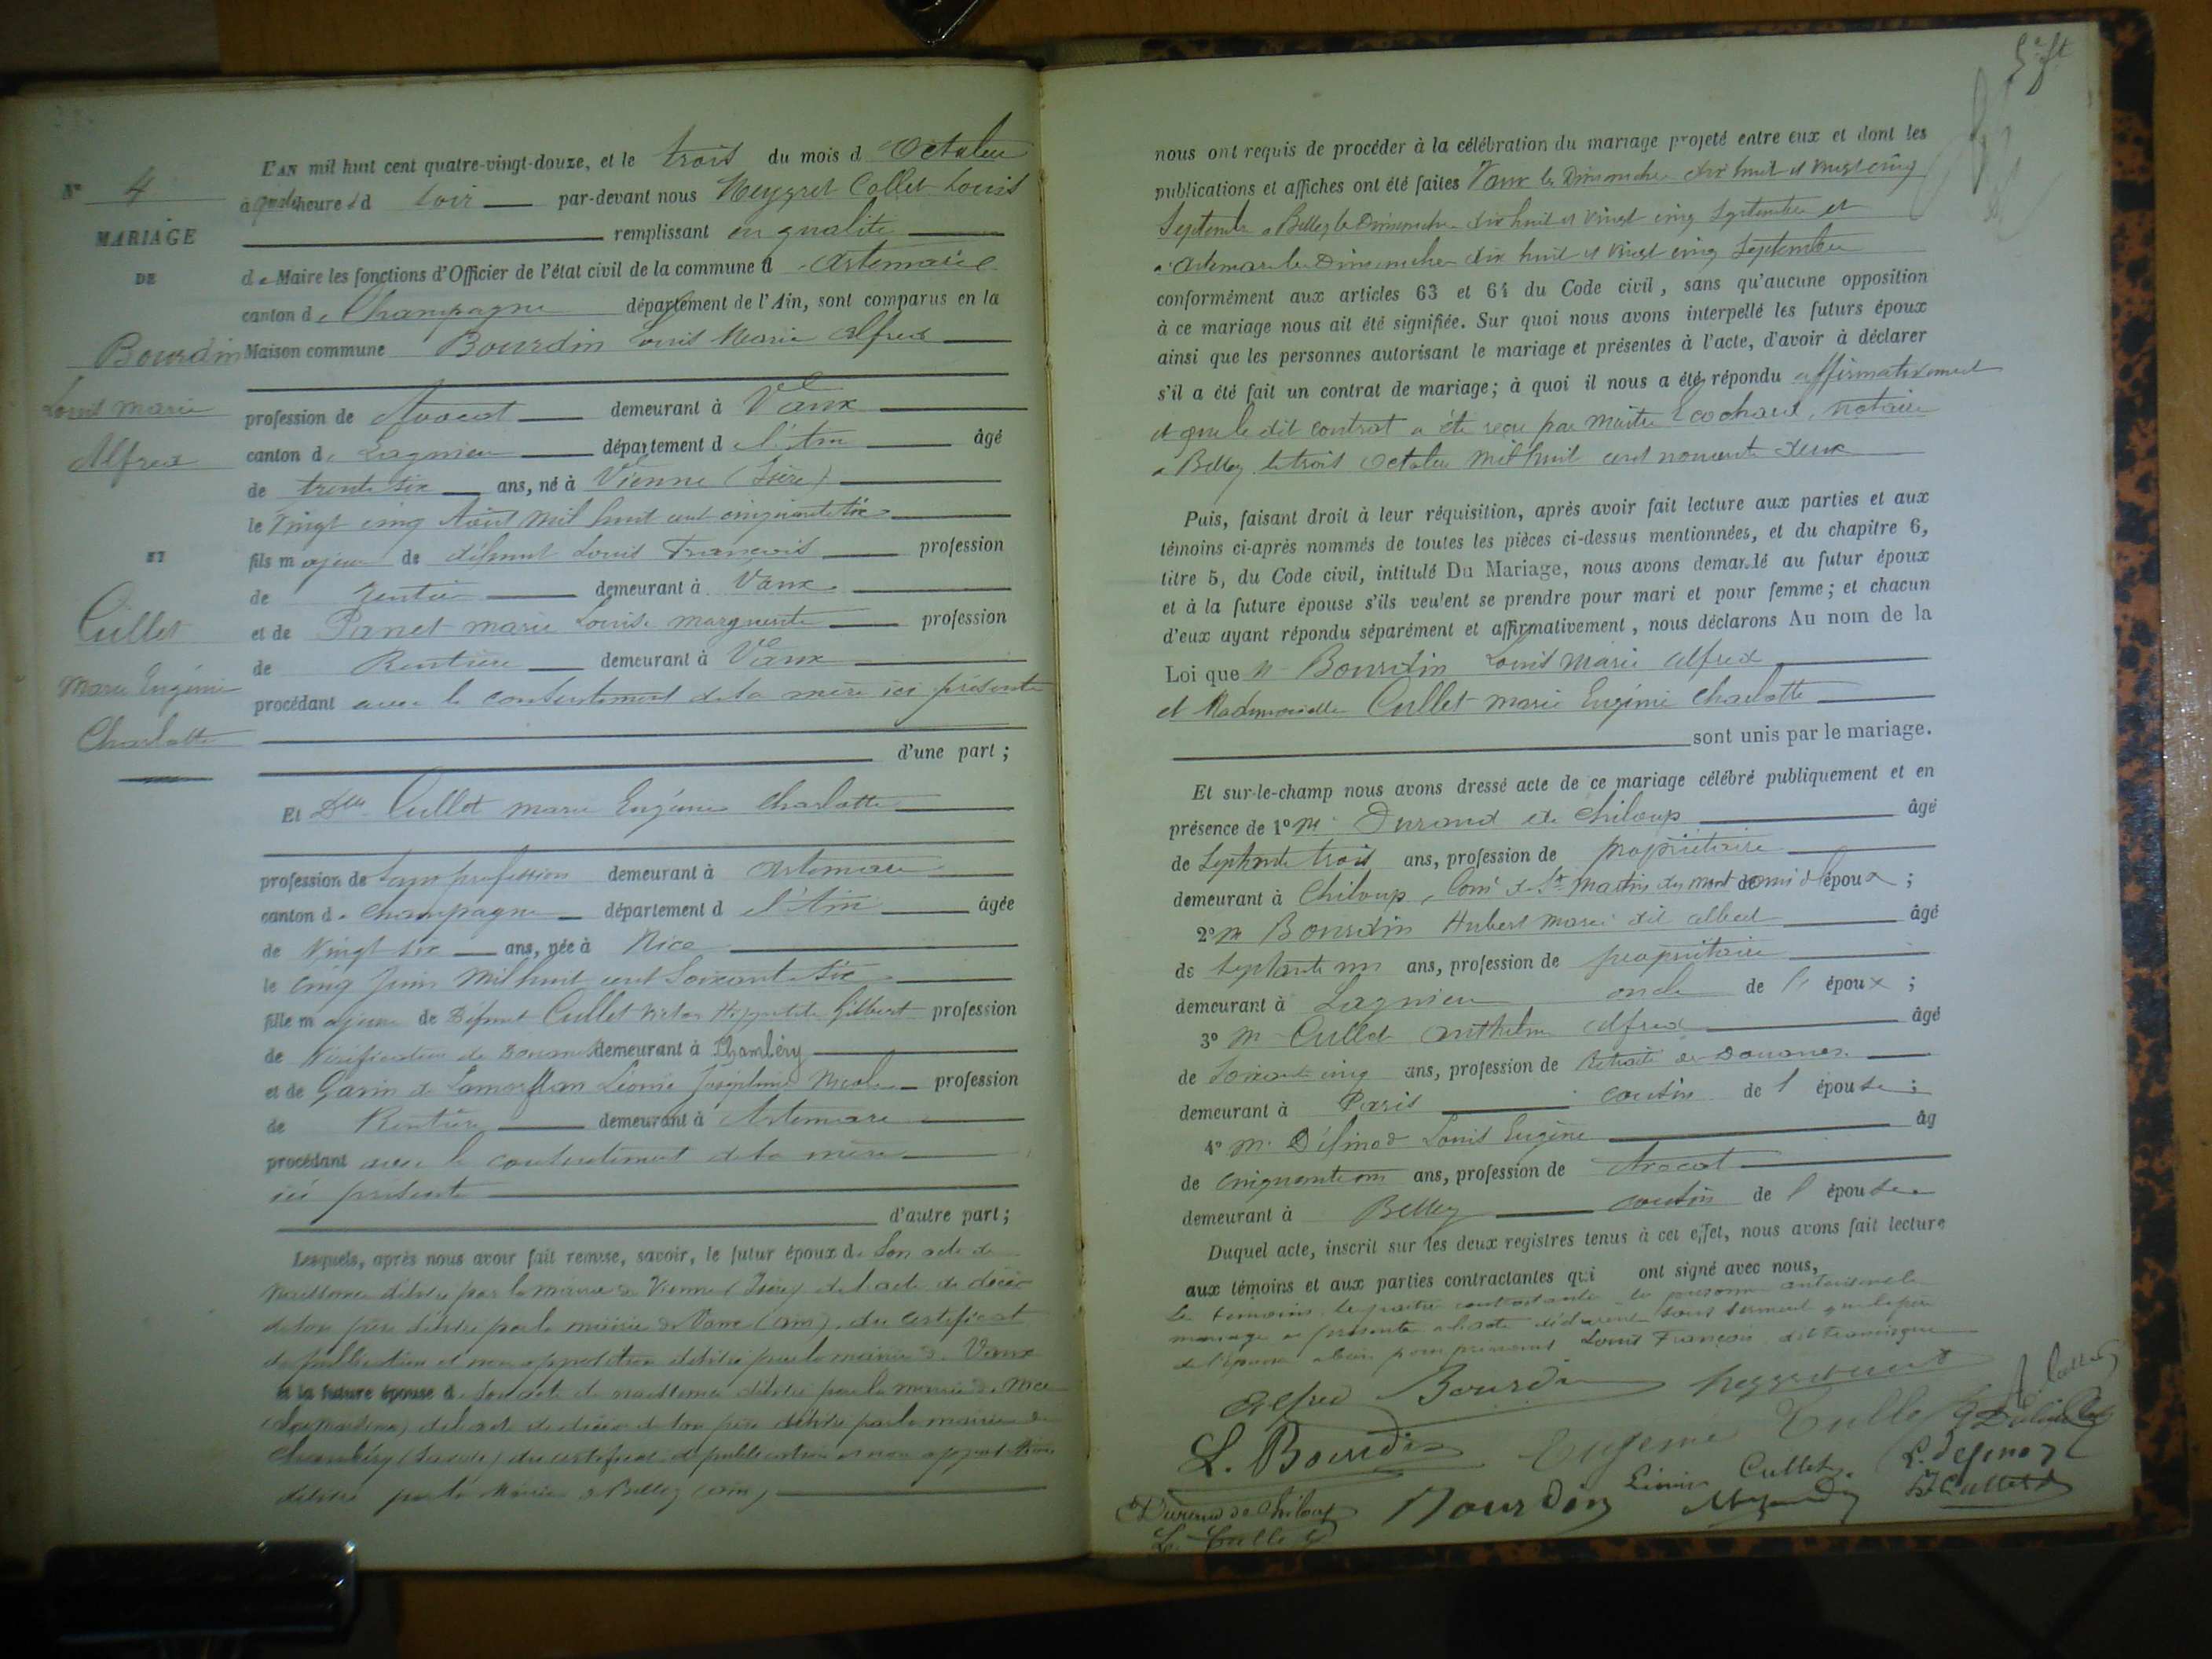 N° 4
MARIAGE
DE
Bourdin
Louis Marie
Alfred
ET
Cullet
Marie Eugénie
Charlotte
L'AN mil huit cent quatre-vingt-douze, et le trois du mois d Octobre
à quatre heures d soir par-devant nous Neygret Collet Louis
remplissant en qualité
de Maire les fonctions d'Officier de l'état civil de la commune d'Artemare
canton de Champagne département de l'Ain, sont comparus en la
Maison commune Bourdin Louis Marie Alfred
profession de Avocat demeurant à Vaux
canton de Lagnieu département de l'Ain âgé
de trente six ans, né à Vienne (Isère)
le vingt cinq Août mil huit cent cinquante six
fils majeur de défunt Louis François profession
de rentier demeurant à Vaux
et de Panet marie Louise marguerite profession
de Rentière demeurant à Vaux
procédant avec le consentement de sa mère ici présente
d'une part ;
Et Dlle Cullet marie Eugénie Charlotte
profession de Sans profession demeurant à Artemare
canton de Champagne département de l'Ain âgée
de vingt six ans, née à Nice
le cinq Juin mil huit cent soixante six
fille majeure de Défunt Cullet Victor Hippolyte Gilbert profession
de Vérificateur de Douanes demeurant à Chambéry
et de Garin de Lamorflan Léonie Joséphine Nicole profession
de Rentière demeurant à Artemare
procédant avec le consentement de la mère
ici présente
d'autre part ;
Lesquels, après nous avoir fait remise, savoir, le futur époux de son acte de
naissance délivré par la mairie de Vienne (Isère) de l'acte de décès
de son père délivré par la mairie de Vaux (ain) du certificat
de publication et non opposition délivré par la mairie de Vaux
et la future épouse de son acte de naissance délivré par la mairie de Nice
de l'acte de décès de son père délivré par la mairie de
Chambéry (Savoie) du certificat de publication et non opposition
délivré par la Mairie de Belley (ain)
nous ont requis de procéder à la célébration du mariage projeté entre eux et dont les
publications et affiches ont été faites Vaux les Dimanches dix huit et vingt cinq
Septembre à Belley les Dimanches dix huit et vingt cinq Septembre et
à Artemare les Dimanches dix huit et vingt cinq Septembre
conformément aux articles 63 et 64 du Code civil, sans qu'aucune opposition
à ce mariage nous ait été signifiée. Sur quoi nous avons interpellé les futurs époux
ainsi que les personnes autorisant le mariage et présentes à l'acte, d'avoir à déclarer
s'il a été fait un contrat de mariage; à quoi il nous a été répondu affirmativement
et que le dit contrat a été reçu par maître Ecochard, notaire
à Belley le trois Octobre mil huit cent nonante deux
Puis, faisant droit à leur réquisition, après avoir fait lecture aux parties et aux
témoins ci-après nommés de toutes les pièces ci-dessus mentionnées, et du chapitre 6,
titre 5, du Code civil, intitulé Du Mariage, nous avons demandé au futur époux
et à la future épouse s'ils veulent se prendre pour mari et pour femme ; et chacun
d'eux ayant répondu séparément et affirmativement, nous déclarons Au nom de la
Loi que M Bourdin Louis Marie Alfred
et Mademoiselle Cullet marie Eugénie Charlotte
sont unis par le mariage.
Et sur-le-champ nous avons dressé acte de ce mariage célébré publiquement et en
présence de 1° M Durand de Chiloup âgé
de septante trois ans, profession de propriétaire
demeurant à Chiloup, Cne de St Martin du Mont ami de l'époux ;
2° M Bourdin Hubert Marie dit Albert âgé
de septante un ans, profession de propriétaire
demeurant à Lagnieu oncle de l'époux ;
3° M Cullet Anthelme Alfred âgé
de soixante cinq ans, profession de Retraité des Douanes
demeurant à Paris cousin de l'épouse ;
4° M. Définod Louis Eugène âg
de cinquante un ans, profession de Avocat
demeurant à Belley cousin de l'épouse
Duquel acte, inscrit sur les deux registres tenus à cet effet, nous avons fait lecture
aux témoins et aux parties contractantes qui ont signé avec nous,
les témoins les parties contractantes les personnes autorisant le
mariage et présentes à l'acte déclarent sous serment que le père
de l'époux a bien pour prénoms Louis François
Alfred Bourdin
L. Bourdin Eugénie Cullet
Léonie Cullet L. Définod
Durand de Chiloup Bourdin
L. Cullet